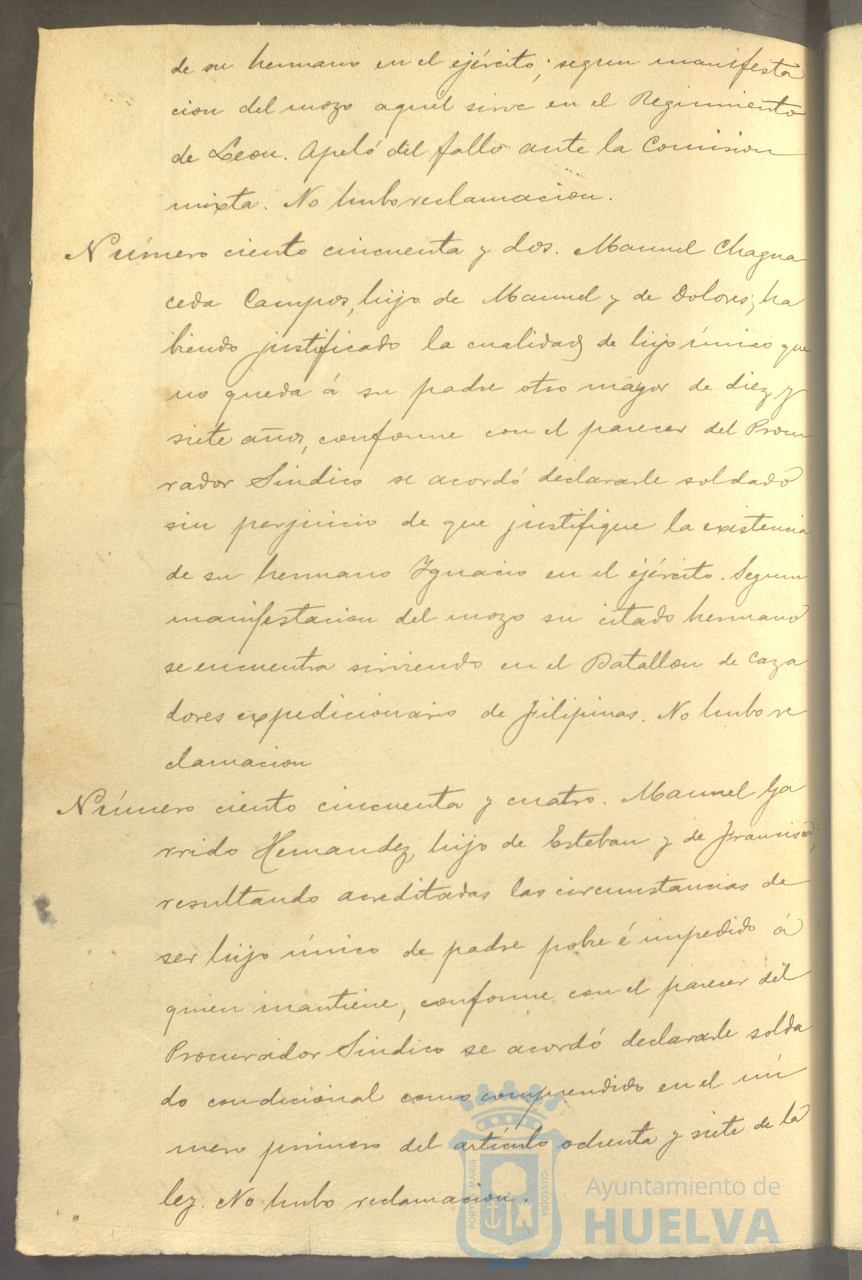 de su hermano en el ejército; segun manifesta
cion del mozo aquel sirve en el Regimiento
de Leon. Apeló del fallo ante la Comision
mixta. No hubo reclamacion.
Número ciento cincuenta y dos. Manuel Chagua
ceda Campos, hijo de Manuel y de Dolores; ha
biendo justificado la cualidad de hijo único que
no queda á su padre otro mayor de diez y
siete años, conforme con el parecer del Procu
rador Sindico se acordó declararle soldado
sin perjuicio de que justifique la existencia
de su hermano Ygnacio en el ejército. Segun
manifestacion del mozo su citado hermano
se encuentra sirviendo en el Batallon de Caza
dores expedicionario de Filipinas. No hubo re
clamacion
Número ciento cincuenta y cuatro. Manuel Ga
rrido Hernandez, hijo de Esteban y de Francisca;
resultando acreditadas las circunstancias de
ser hijo único de padre pobre é impedido á
quien mantiene, conforme con el parecer del
Procurador Sindico se acordó declararle solda
do condicional como comprendido en el nú
mero primero del artículo ochenta y siete de la
ley. No hubo reclamacion.
PORTUS MARIS CUSTODIA
Ayuntamiento de
HUELVA